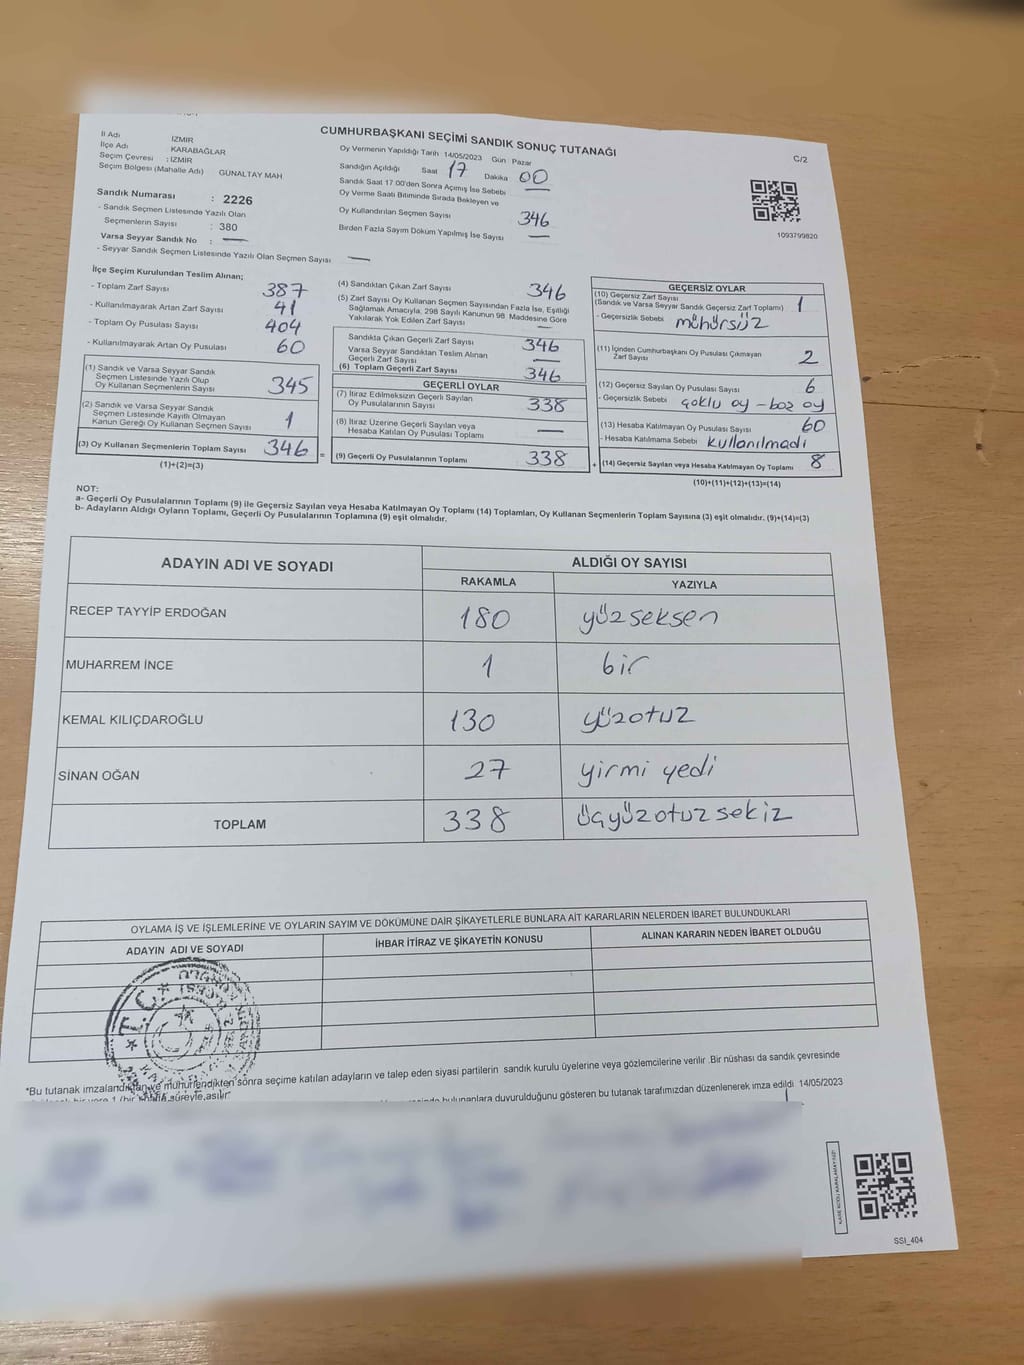 CUMHURBAŞKANI SEÇİMİ SANDIK SONUÇ TUTANAĞI
C/2
İl Adı İZMİR
İlçe Adı KARABAĞLAR
Seçim Çevresi : İZMİR
Seçim Bölgesi (Mahalle Adı) GÜNALTAY MAH
Sandık Numarası : 2226
- Sandık Seçmen Listesinde Yazılı Olan
Seçmenlerin Sayısı : 380
Varsa Seyyar Sandık No : —
- Seyyar Sandık Seçmen Listesinde Yazılı Olan Seçmen Sayısı —
Oy Vermenin Yapıldığı Tarih 14/05/2023 Gün Pazar
Sandığın Açıldığı Saat 17 Dakika 00
Sandık Saat 17.00'den Sonra Açılmış İse Sebebi —
Oy Verme Saati Bitiminde Sırada Bekleyen ve
Oy Kullandırılan Seçmen Sayısı 346
Birden Fazla Sayım Döküm Yapılmış İse Sayısı —
1093799820
İlçe Seçim Kurulundan Teslim Alınan;
- Toplam Zarf Sayısı 387
- Kullanılmayarak Artan Zarf Sayısı 41
- Toplam Oy Pusulası Sayısı 404
- Kullanılmayarak Artan Oy Pusulası 60
(1) Sandık ve Varsa Seyyar Sandık
Seçmen Listesinde Yazılı Olup
Oy Kullanan Seçmenlerin Sayısı 345
(2) Sandık ve Varsa Seyyar Sandık
Seçmen Listesinde Kayıtlı Olmayan
Kanun Gereği Oy Kullanan Seçmen Sayısı 1
(3) Oy Kullanan Seçmenlerin Toplam Sayısı 346 =
(1)+(2)=(3)
(4) Sandıktan Çıkan Zarf Sayısı 346
(5) Zarf Sayısı Oy Kullanan Seçmen Sayısından Fazla İse, Eşitliği
Sağlamak Amacıyla, 298 Sayılı Kanunun 98 Maddesine Göre
Yakılarak Yok Edilen Zarf Sayısı —
Sandıkta Çıkan Geçerli Zarf Sayısı 346
Varsa Seyyar Sandıktan Teslim Alınan
Geçerli Zarf Sayısı —
(6) Toplam Geçerli Zarf Sayısı 346
GEÇERLİ OYLAR
(7) İtiraz Edilmeksizin Geçerli Sayılan
Oy Pusulalarının Sayısı 338
(8) İtiraz Üzerine Geçerli Sayılan veya
Hesaba Katılan Oy Pusulası Toplamı —
(9) Geçerli Oy Pusulalarının Toplamı 338 +
GEÇERSİZ OYLAR
(10) Geçersiz Zarf Sayısı
(Sandık ve Varsa Seyyar Sandık Geçersiz Zarf Toplamı) 1
- Geçersizlik Sebebi mühürsüz
(11) İçinden Cumhurbaşkanı Oy Pusulası Çıkmayan
Zarf Sayısı 2
(12) Geçersiz Sayılan Oy Pusulası Sayısı 6
- Geçersizlik Sebebi çoklu oy - boz oy
(13) Hesaba Katılmayan Oy Sayısı 60
- Hesaba Katılmama Sebebi kullanılmadı
(14) Geçersiz Sayılan veya Hesaba Katılmayan Oy Toplamı 8
(10)+(11)+(12)+(13)=(14)
NOT:
a- Geçerli Oy Pusulalarının Toplamı (9) ile Geçersiz Sayılan veya Hesaba Katılmayan Oy Toplamı (14) Toplamları, Oy Kullanan Seçmenlerin Toplam Sayısına (3) eşit olmalıdır. (9)+(14)=(3)
b- Adayların Aldığı Oyların Toplamı, Geçerli Oy Pusulalarının Toplamına (9) eşit olmalıdır.
ADAYIN ADI VE SOYADI
ALDIĞI OY SAYISI
RAKAMLA YAZIYLA
RECEP TAYYİP ERDOĞAN 180 yüzseksen
MUHARREM İNCE 1 bir
KEMAL KILIÇDAROĞLU 130 yüzotuz
SİNAN OĞAN 27 yirmi yedi
TOPLAM 338 üçyüzotuzsekiz
OYLAMA İŞ VE İŞLEMLERİNE VE OYLARIN SAYIM VE DÖKÜMÜNE DAİR ŞİKAYETLERLE BUNLARA AİT KARARLARIN NELERDEN İBARET BULUNDUKLARI
ADAYIN ADI VE SOYADI
İHBAR İTİRAZ VE ŞİKAYETİN KONUSU
ALINAN KARARIN NEDEN İBARET OLDUĞU
T.C.
*Bu tutanak imzalandıktan ve mühürlendikten sonra seçime katılan adayların ve talep eden siyasi partilerin sandık kurulu üyelerine veya gözlemcilerine verilir. Bir nüshası da sandık çevresinde
bir yere 1 (bir süreyle asılır bulunanlara duyurulduğunu gösteren bu tutanak tarafımızdan düzenlenerek imza edildi 14/05/2023
KARE KODU KARALAMAYINIZ!
SSİ_404